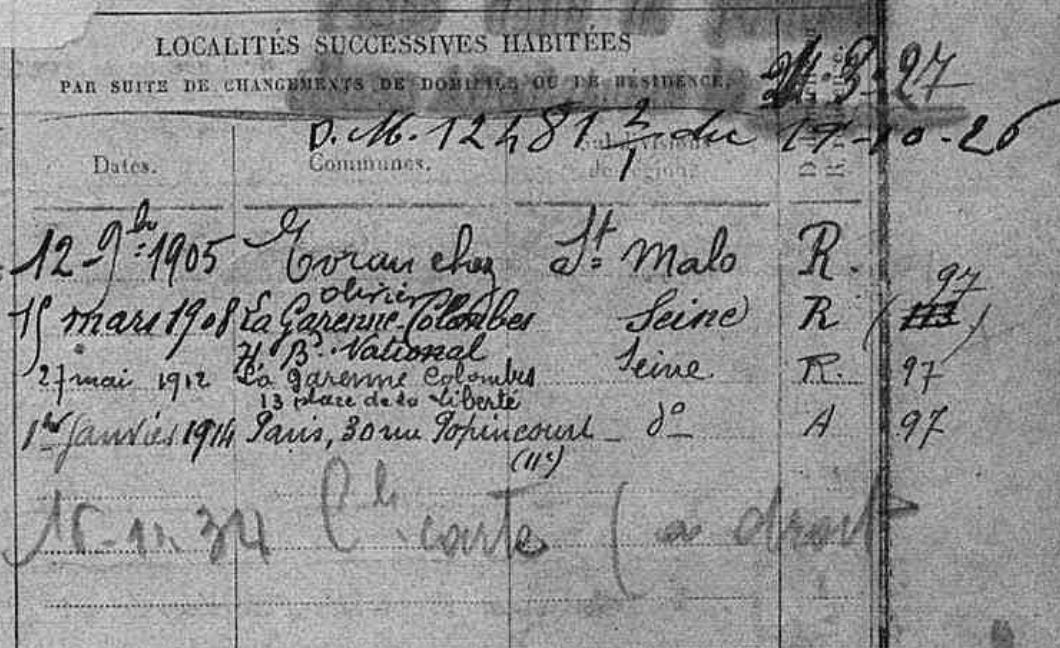 LOCALITÉS SUCCESSIVES HABITÉES
PAR SUITE DE CHANGEMENTS DE DOMICILE OU DE RÉSIDENCE.
3-27
D.M. 12481 2/1 du 19-10-26
Dates. Communes. Subdivisions de région.
12-9bre 1905 Evran chez St Malo R.
olivier
15 mars 1908 La Garenne-Colombes Seine R (113) 97
Bd National
27 mai 1912 La Garenne Colombes Seine R. 97
13 place de la Liberté
1er Janvier 1914 Paris, 30 rue Popincourt do A 97
(11e)
carte (a droit